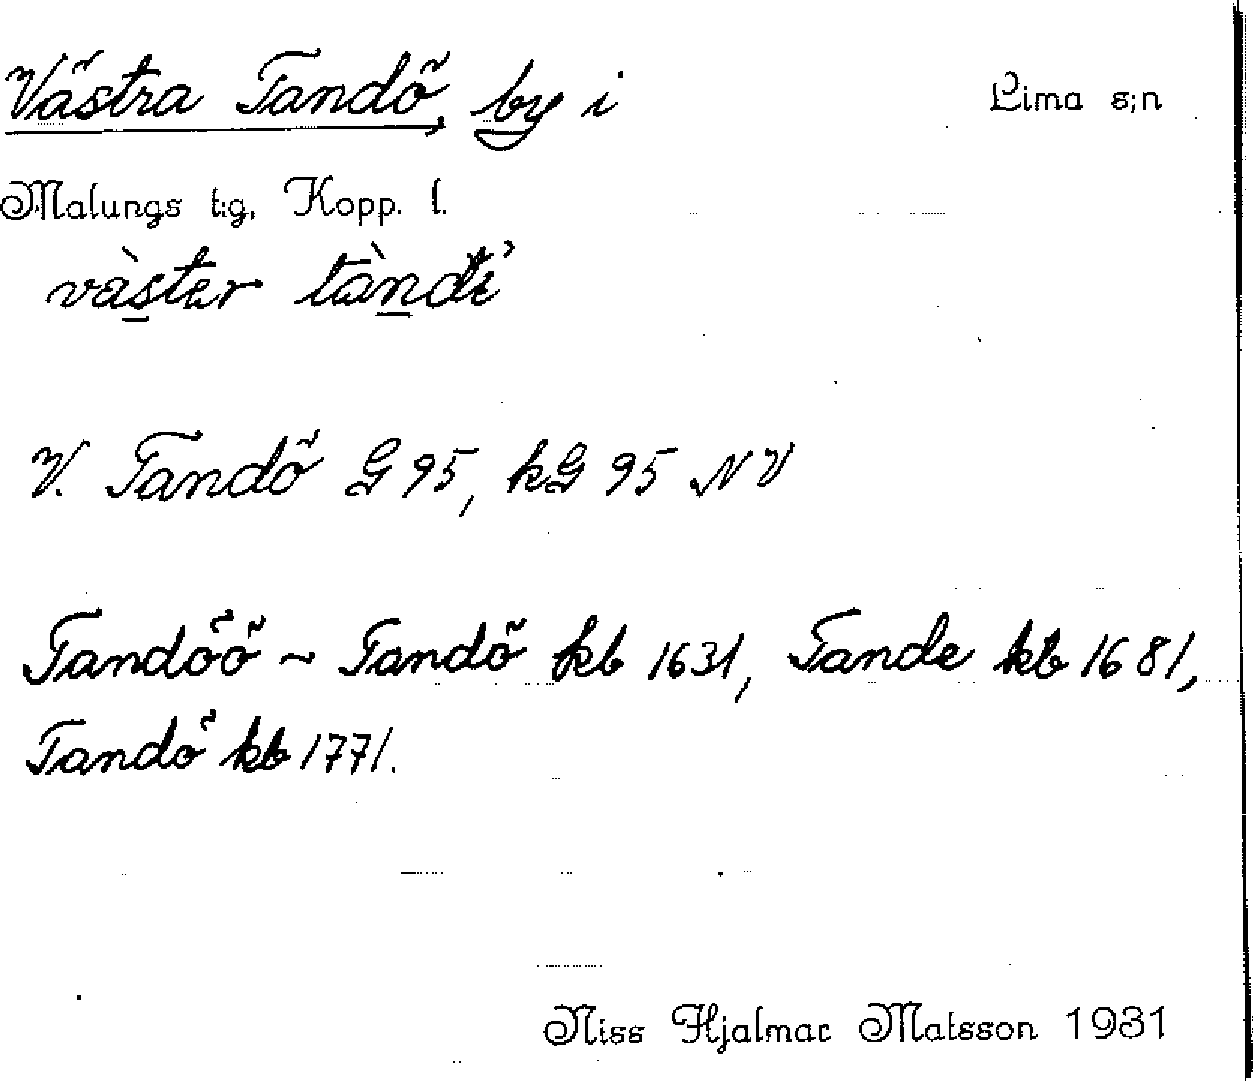 Västra Tandö, by i Lima s:n
Malungs t:g, Kopp. l.
vàster tàndi
V. Tandö G 95, kG 95 NV
Tandöö ~ Tandö kb 1631, Tande kb 1681,
Tandö kb 1771.
Niss Hjalmar Matsson 1931